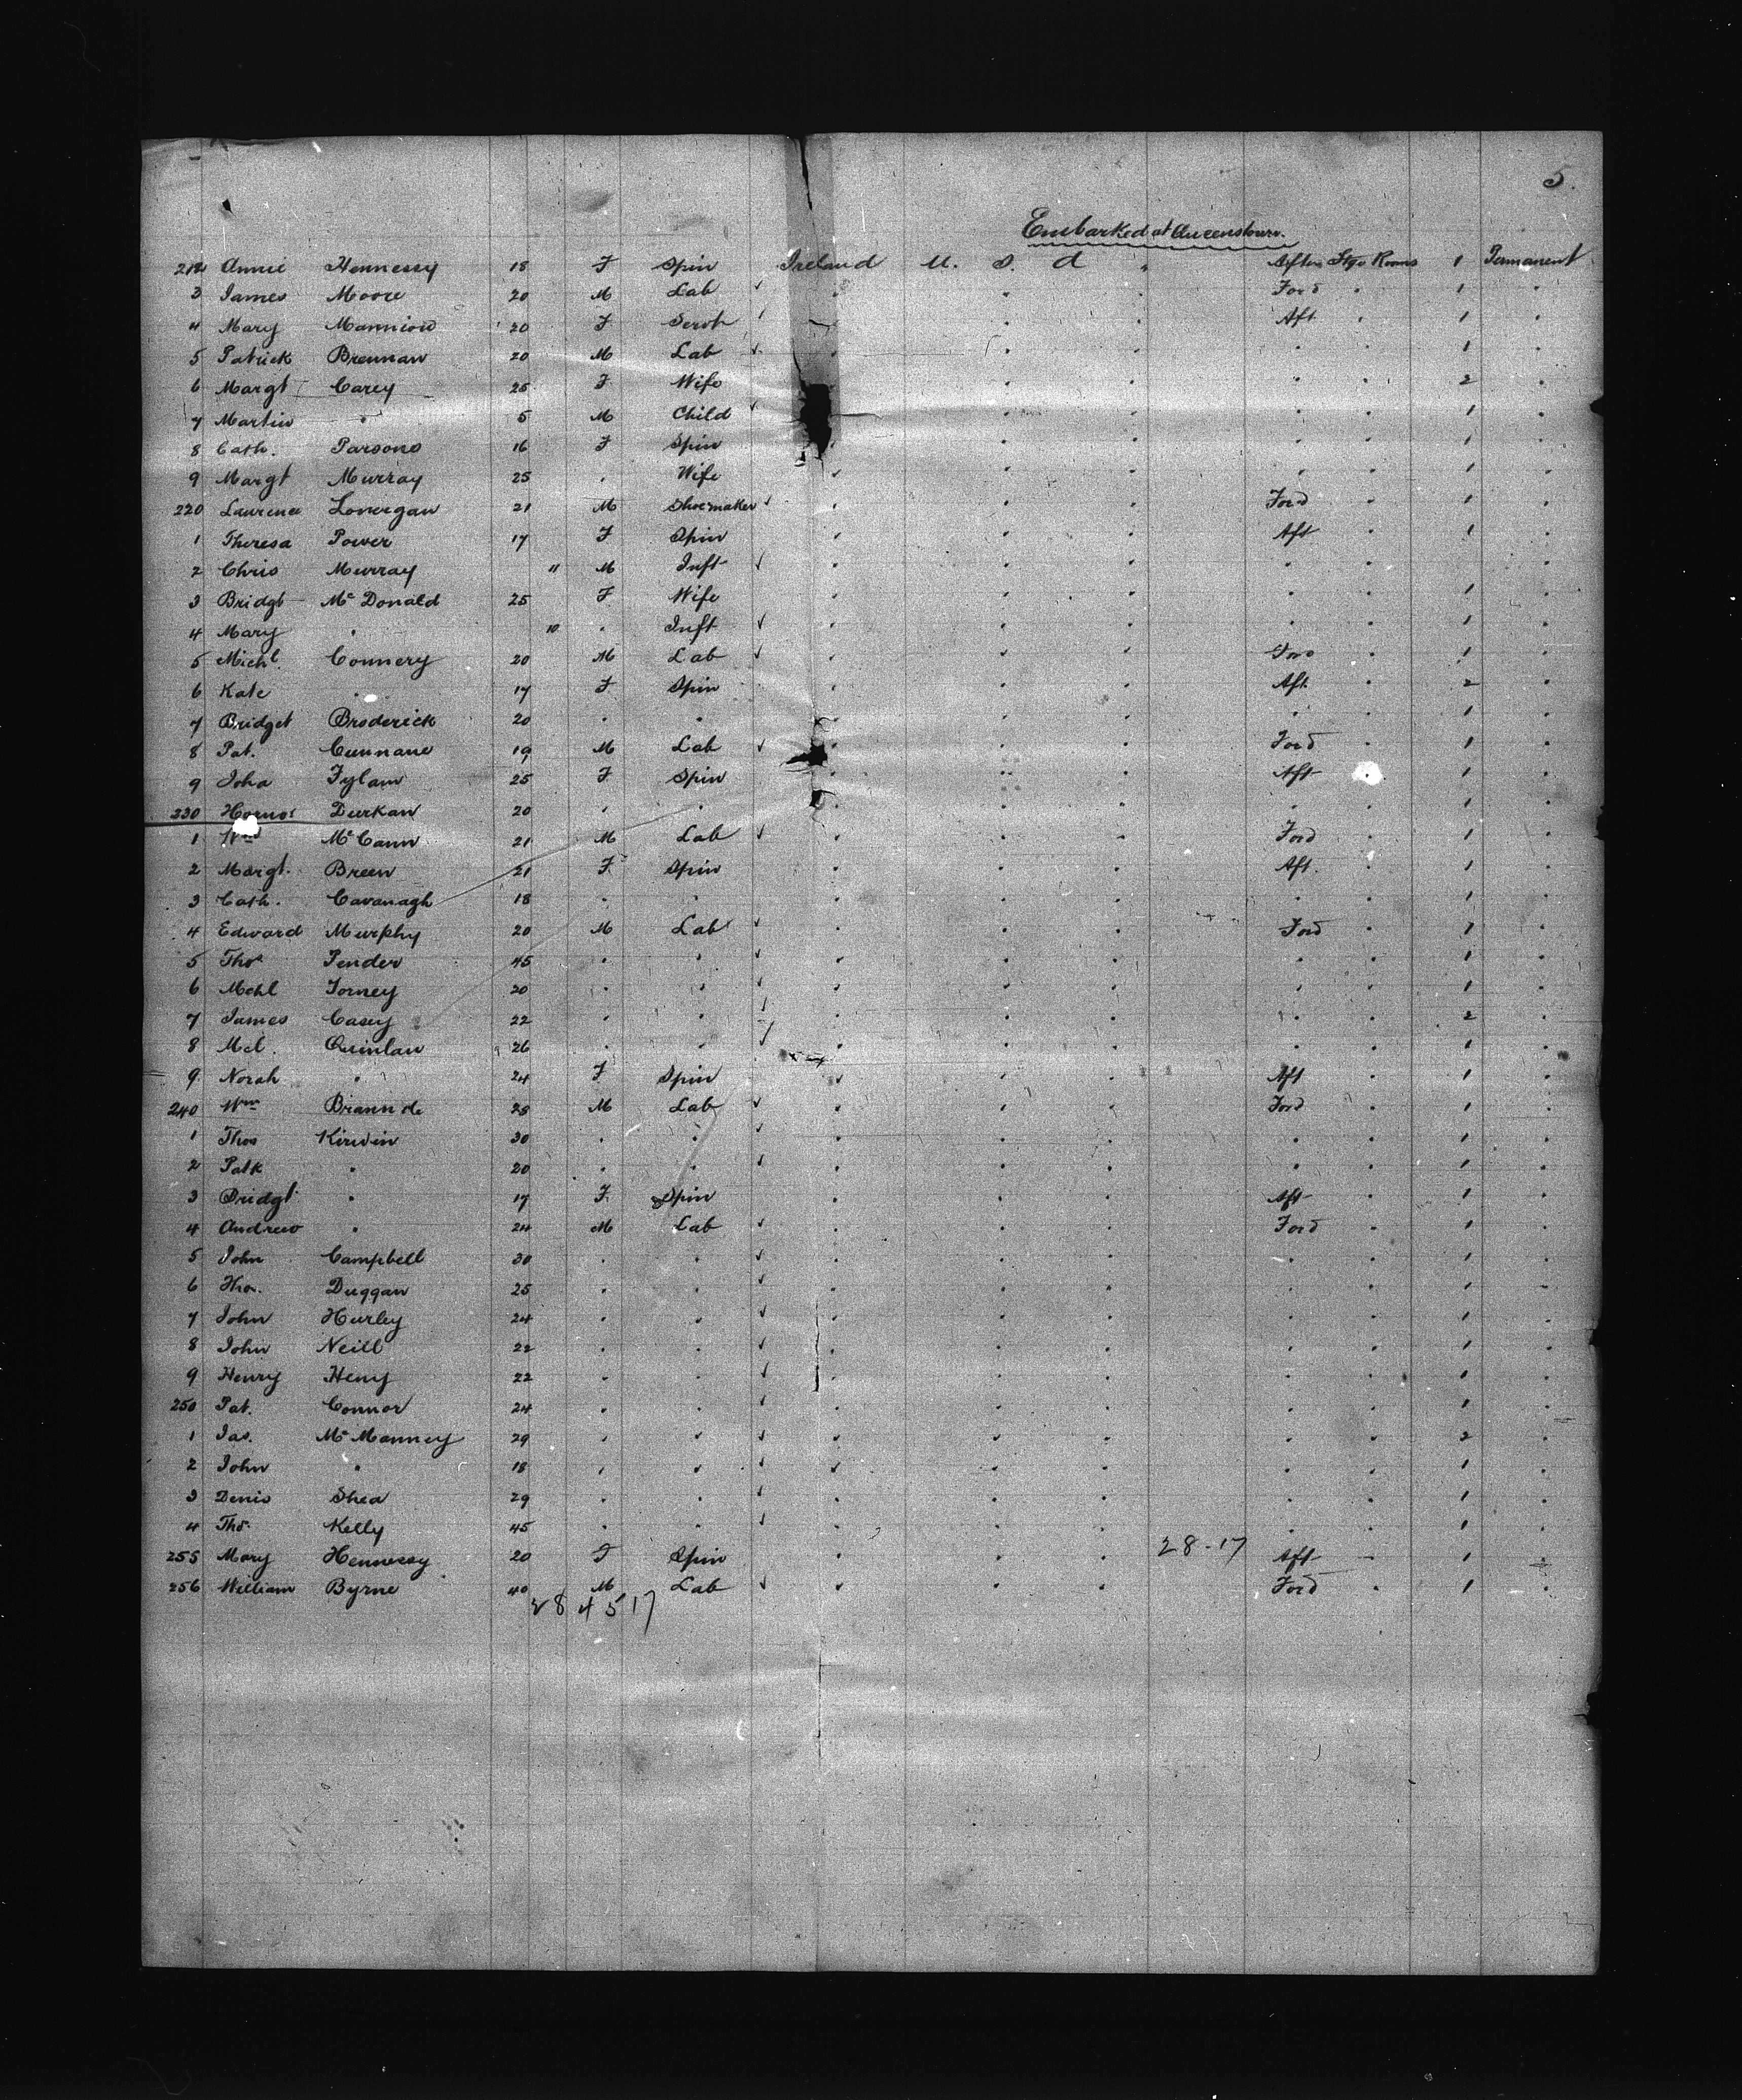 5.
Embarked at Queenstown.
212 Annie Hennessy 18 F Spin Ireland U. S. A " After Stge Rooms 1 Permanent
3 James Moore 20 M Lab ✓ " " " Ford " 1 "
4 Mary Mannion 20 F Servt " " " Aft " 1 "
5 Patrick Brennan 20 M Lab ✓ " " " " " 1 "
6 Margt Carey 25 F Wife " " " " 2 "
7 Martin " 5 M Child ✓ " " " " 1 "
8 Cath. Parsons 16 F Spin " " " " " 1 "
9 Margt Murray 25 " Wife " " " " " 1 "
220 Laurence Lonergan 21 M Shoemaker ✓ " " " Ford " 1 "
1 Theresa Power 17 F Spin " " " Aft " 1 "
2 Chris Murray 11 M Inft ✓ " " " " " "
3 Bridgt McDonald 25 F Wife " " " " " 1 "
4 Mary " 10 " Inft ✓ " " " " " 1 "
5 Michl. Connery 20 M Lab ✓ " " " Ford " 1 "
6 Kate " 17 F Spin " " " Aft " 2 "
7 Bridget Broderick 20 " " " " " " " 1 "
8 Pat. Cunnane 19 M Lab ✓ " " " Ford " 1 "
9 Joha 25 F Spin " " " Aft " 1 "
230 Durkan 20 " " " " " " " 1 "
1 Wm McCann 21 M Lab ✓ " " " Ford " 1 "
2 Margt. Breen 21 F Spin " " " Aft. " 1 "
3 Cath. Cavanagh 18 " " " " " " " 1 "
4 Edward Murphy 20 M Lab ✓ " " " Ford " 1 "
5 Thos Pender 45 " " ✓ " " " " " 1 "
6 Mchl Torney 20 " " ✓ " " " " " 1 "
7 James Casey 22 " " ✓ " " " " " 2 "
8 Mcl. Quinlan 26 " " ✓ " " " " " 1 "
9 Norah " 24 F Spin " " " Aft " 1 "
240 Wm 25 M Lab ✓ " " " Ford " 1 "
1 Thos Kirwin 30 " " ✓ " " " " " 1 "
2 Patk " 20 " " ✓ " " " " " 1 "
3 Bridgt " 17 F. Spin " " " Aft " 1 "
4 Andrew " 24 M Lab ✓ " " " Ford " 1 "
5 John Campbell 30 " " ✓ " " " " " 1 "
6 Thos. Duggan 25 " " ✓ " " " " " 1 "
7 John Hurley 24 " " ✓ " " " " " 1 "
8 John Neill 22 " " ✓ " " " " " 1 "
9 Henry Heny 22 " " ✓ " " " " " 1 "
250 Pat. Connor 24 " " ✓ " " " " " 1 "
1 Jas. McManney 29 " " ✓ " " " " " 2 "
2 John " 18 " " ✓ " " " " " 1 "
3 Denis Shea 29 " " ✓ " " " " " 1 "
4 Thos. Kelly 45 " " ✓ " " " " " 1 "
255 Mary Hennessy 20 F Spin " " " 28-17 Aft " 1 "
256 William Byrne 40 M Lab ✓ " " " Ford " 1 "
28 45 17